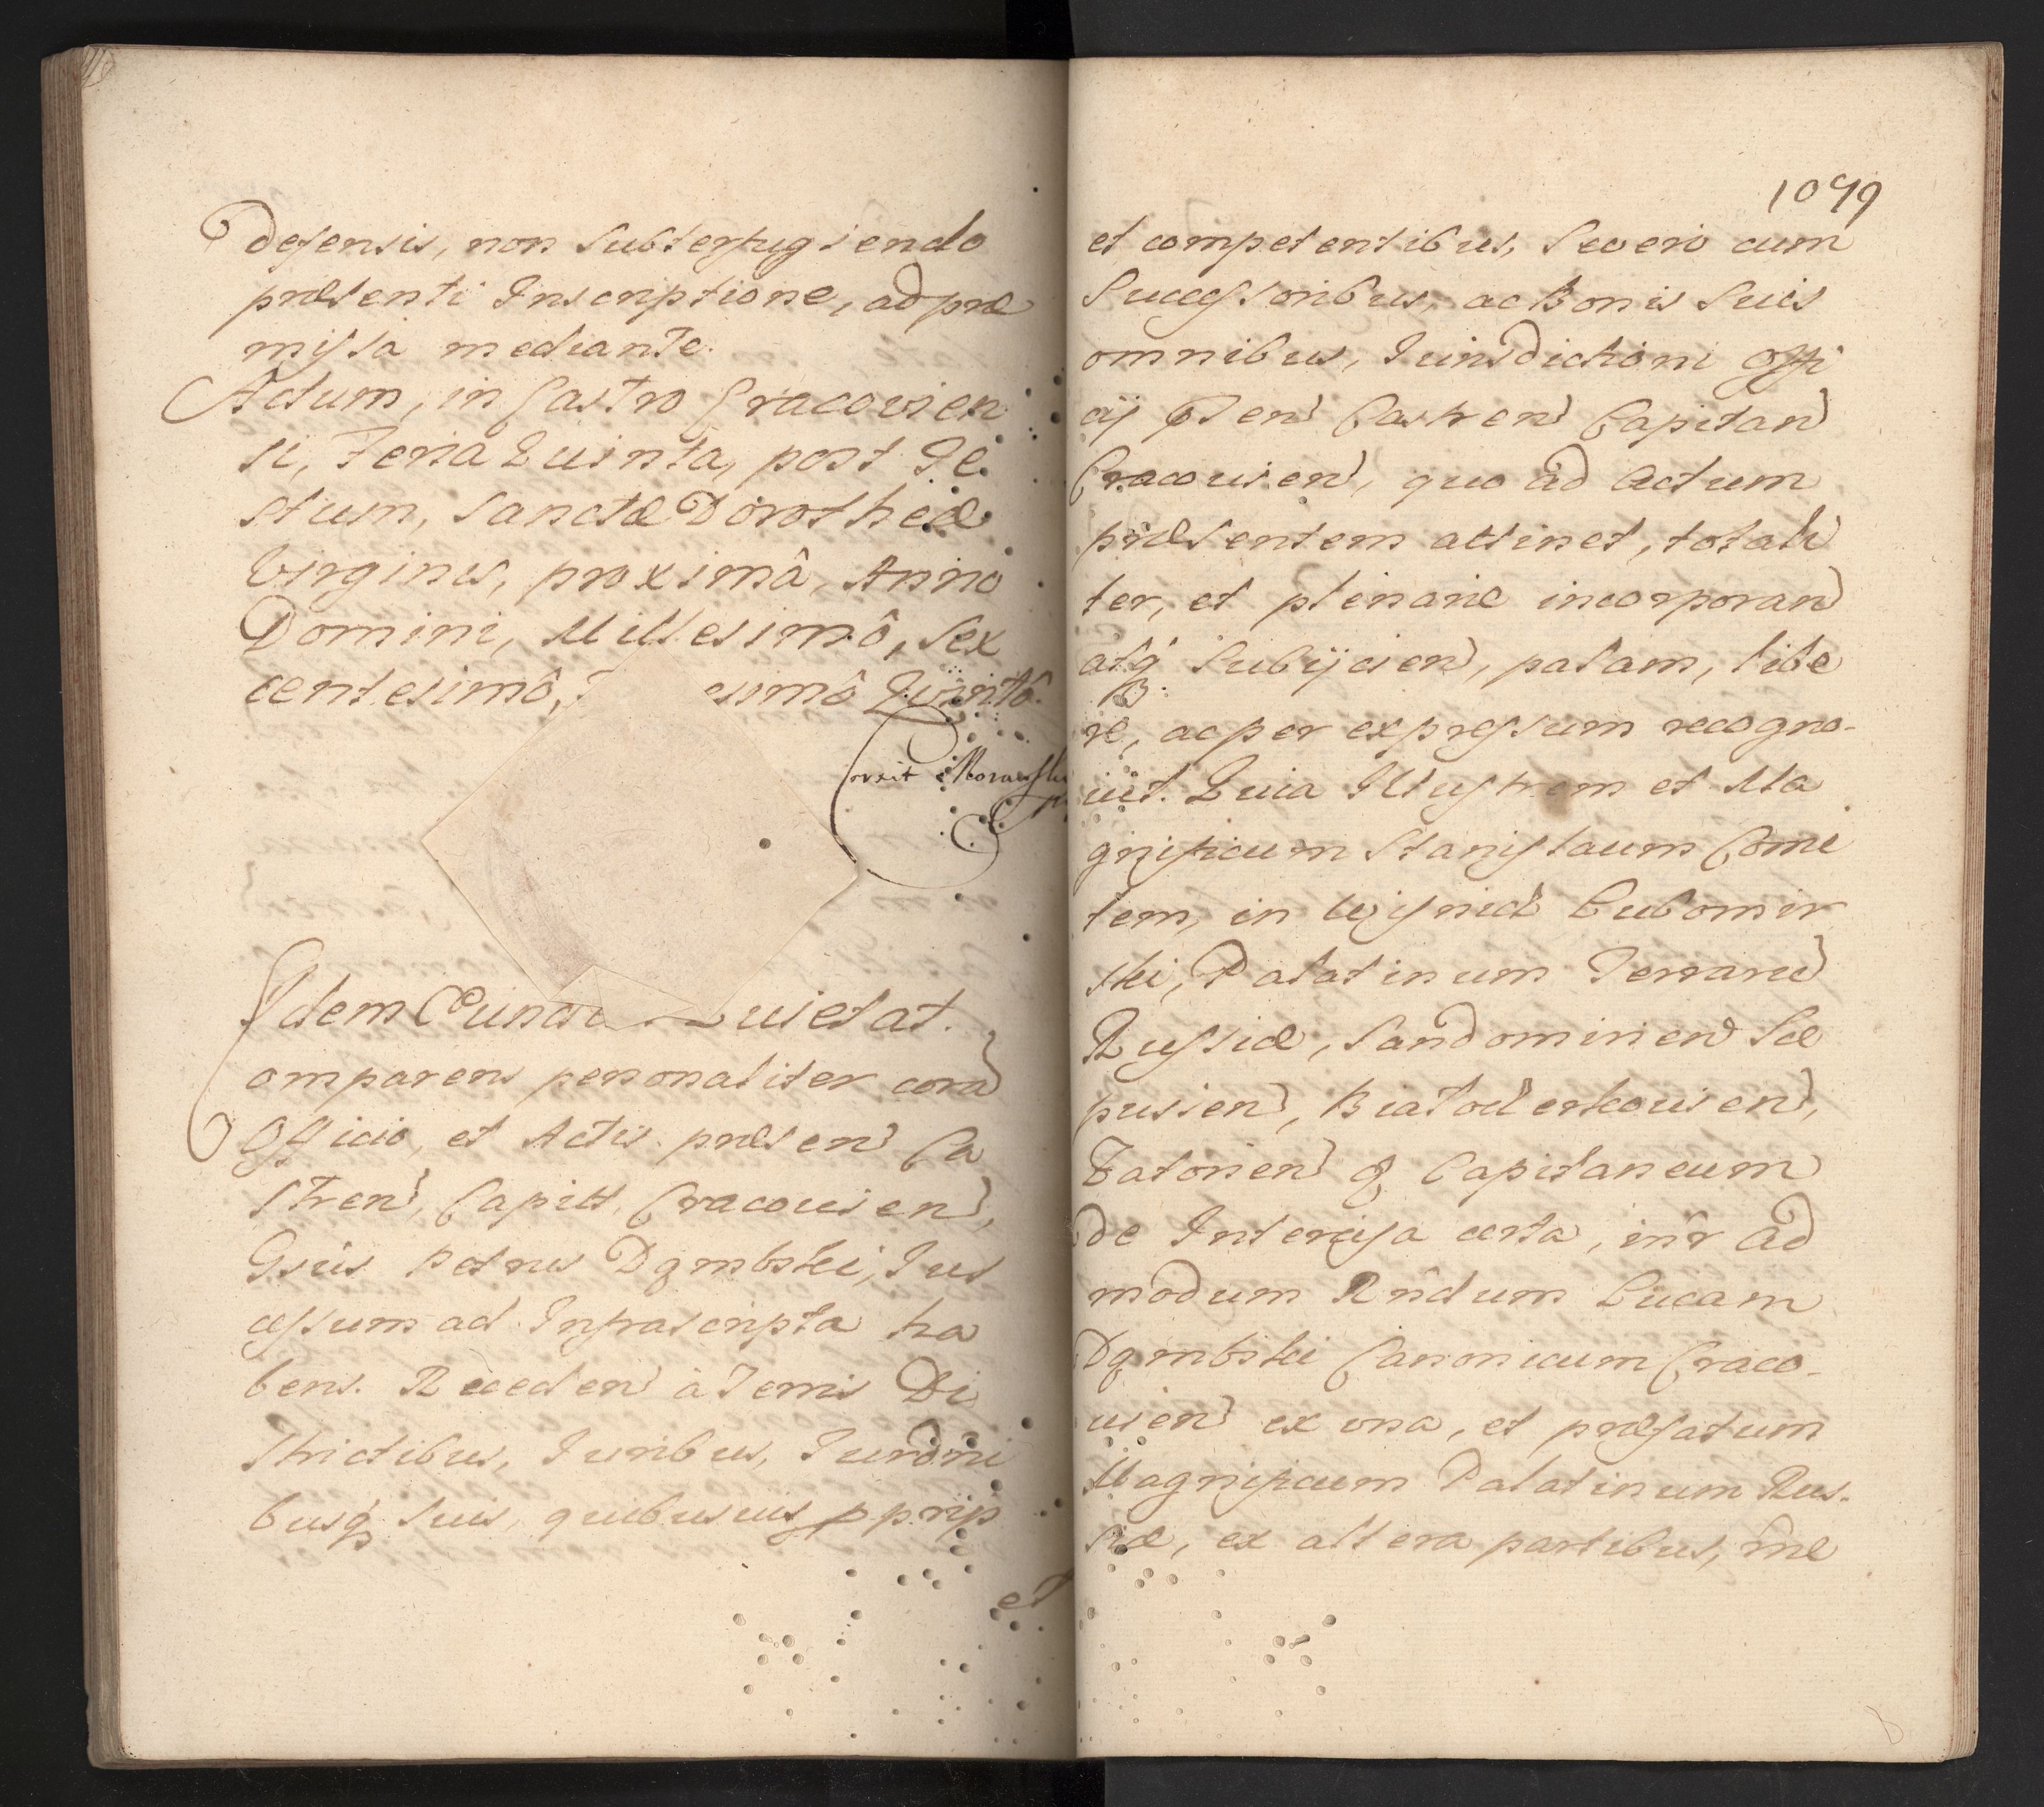 defensis, non subterfugiendo
præsenti Inscriptione, ad præ
missa mediante.
Actum, in Castro Cracovien
si, Feria Quinta, post Fe
stum, Sanctæ Dorotheæ
Virginis, proximâ, Anno
Domini, Millesimô, Sex
centesimô, esimô Quintô.
Corxit Morawski
Idem Eund uietat.
Comparens personaliter cora
Officio, et Actis præsen Ca
stren, Capitt, Cracouien,
Gsus Petrus Dąmbski, Suc
cessum ad Infrascripta ha
bens. Receden à Terris Di
strictibus, Iuribus, Iurdni
busq suis, quibusuis pprijs
et
1099
et competentibus, Seveio cum
Successoribus, ac Bonis suis
omnibus, Iurisdictioni Offi
cij Pden Castren Capitan
Cracouien, quo ad Actum
præsentem attinet, totali
ter, et plenarie incorporan
atq subijcien, palam, libe
re, ac per expressum recogno-
uit. Quia Illustrem et Ma
gnificum Stanislaum Comi
tem, in Wisnicz Lubomir
ski, Palatinum Terraru
Russiæ, Sandomirien Sce
pusien, Biatocerkouien,
Zatorien q Capitaneum
de Intercisa certa, intr ad
modum Rndum Lucam
Dąmbski Canonicum Craco-
uien ex una, et præfatum
Magnificum Palatinum Rus-
siæ, ex altera partibus, me